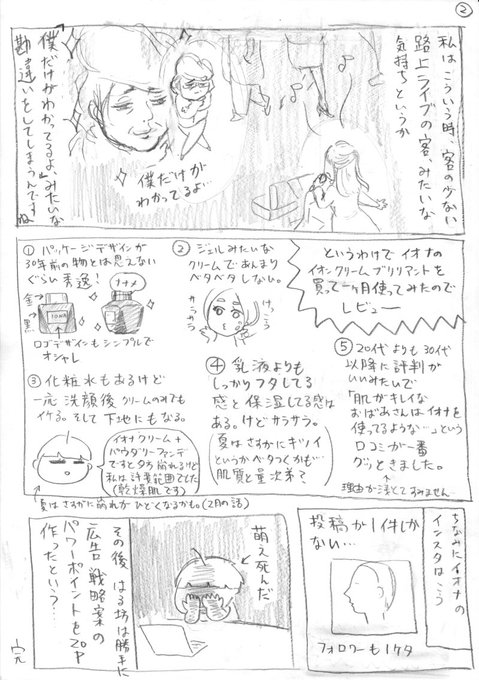 ②
私はこういう時、客の少ない
路上ライブの客、みたいな
気持ちというか
僕だけが
わかってるよ…
僕だけがわかってるよ、みたいな
勘違いをしてしまうんですね
というわけでイオナの
イオンクリームブリリアントを
買って一ヶ月使ってみたので
レビュー
① パッケージデザインが
30年前の物とは思えない
ぐらい秀逸!
ナナメ
金→
黒→
IONA
ロゴデザインもシンプルで
オシャレ
② ジェルみたいな
クリームであんまり
ベタベタしない。
けっこう
サラサラ
③ 化粧水もあるけど
一応洗顔後クリームのみでも
イケる。そして下地にもなる。
イオナクリーム+
パウダリーファンデ
ですと夕方崩れるけど
私は許容範囲でした
(乾燥肌です)
夏はさすがに崩れがひどくなるかも。(2月の話)
④ 乳液よりも
しっかりフタしてる
感と保湿してる感は
ある。けどサラサラ。
夏はさすがにキツイ
というかベタつくかも…
肌質と量次第?
⑤ 20代よりも30代
以降に評判が
いいみたいで
「肌がキレイな
おばあさんはイオナを
使ってるような…」という
口コミが一番
グッときました。
理由が漠としてすみません
ちなみにイオナの
インスタはこう
投稿が1件しか
ない…
フォロワーも1ケタ
萌え死んだ
その後はる坊は勝手に
広告戦略案の
パワーポイントを20P
作ったという…
完